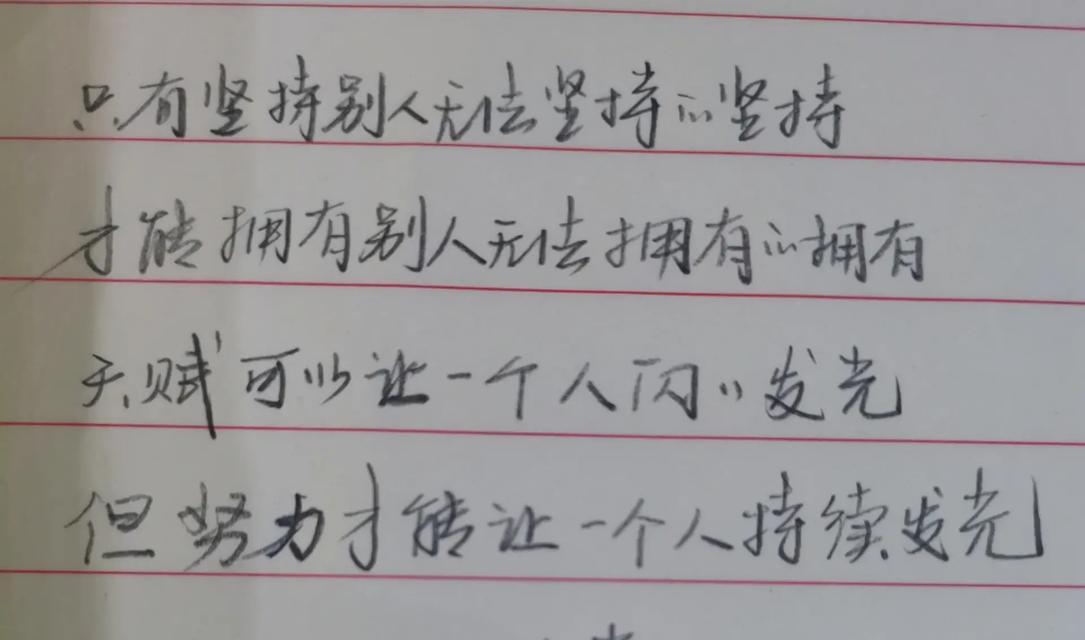 只有坚持别人无法坚持的坚持
才能拥有别人无法拥有的拥有
天赋可以让一个人闪〃发光
但努力才能让一个人持续发光